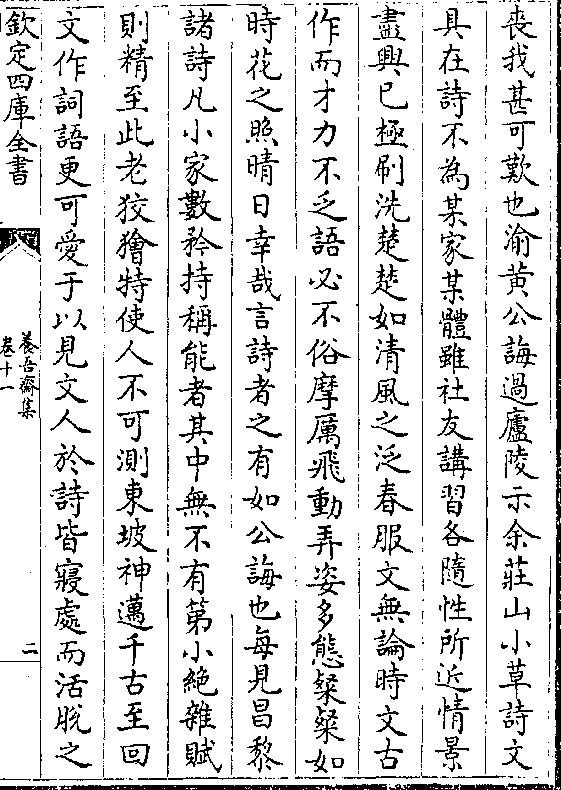 喪我甚可歎也渝黄公誨過廬陵示余莊山小草詩文
具在詩不為某家某體雖社友講習各隨性所近情景
盡興已極刷洗楚楚如清風之泛春服文無論時文古
作而才力不乏語必不俗摩厲飛動弄姿多態粲粲如
時花之照晴日幸哉言詩者之有如公誨也每見昌黎
諸詩凡小家數矜持稱能者其中無不有第小絶雜賦
則精至此老狡獪特使人不可測東坡神邁千古至回
文作詞語更可愛于以見文人於詩皆寢處而活脫之
欽定四庫全書
養吾齋集
卷十一
二